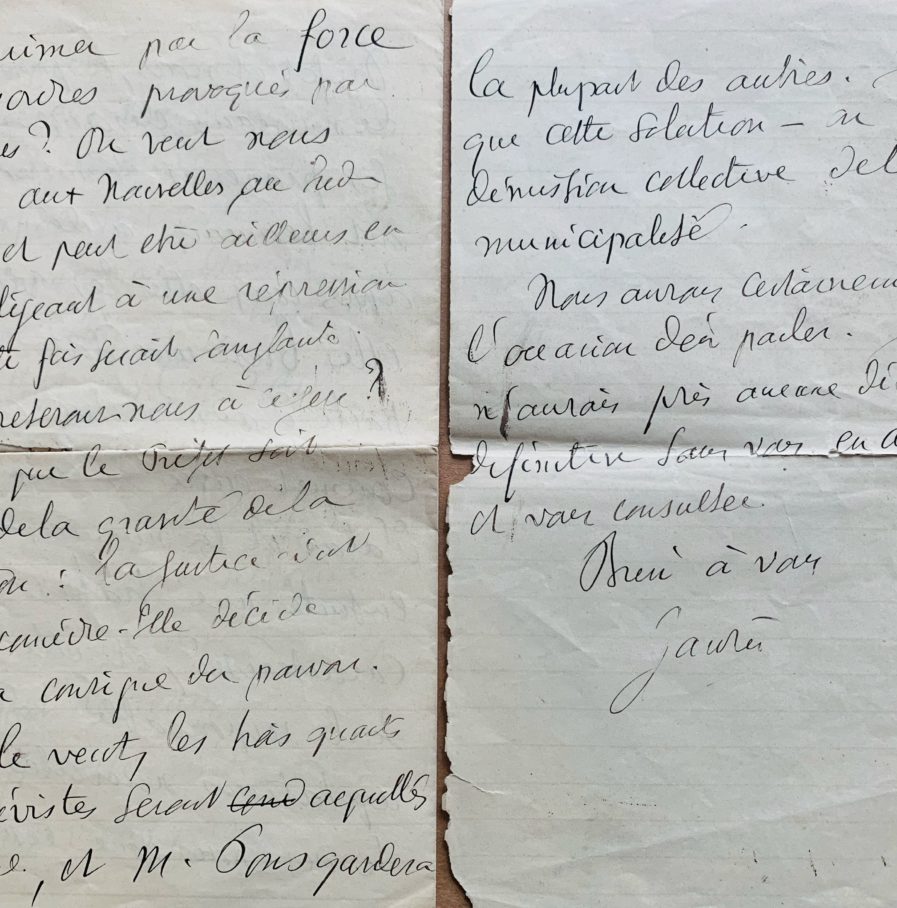 rimer par la force
ordres provoqués par
es ? On veut nous
aux nouvelles au
et peut être ailleurs en
ligeant à une répression
te fois serait sanglante.
terons-nous à ce jeu ?
que le Préfet soit
de la gravité de la
on : la justice est
comédie. Elle décide
a consigne du pouvoir.
le veut, les trois quarts
évistes seront acquittés
e, et M. Pons gardera
la plupart des autres.
que cette solution — ou
démission collective de l
municipalité.
Nous aurons certainem
l'occasion d'en parler.
n'aurais pris aucune dé
définitive sans vous en a
et vous consulter.
Bien à vous
Jaurès